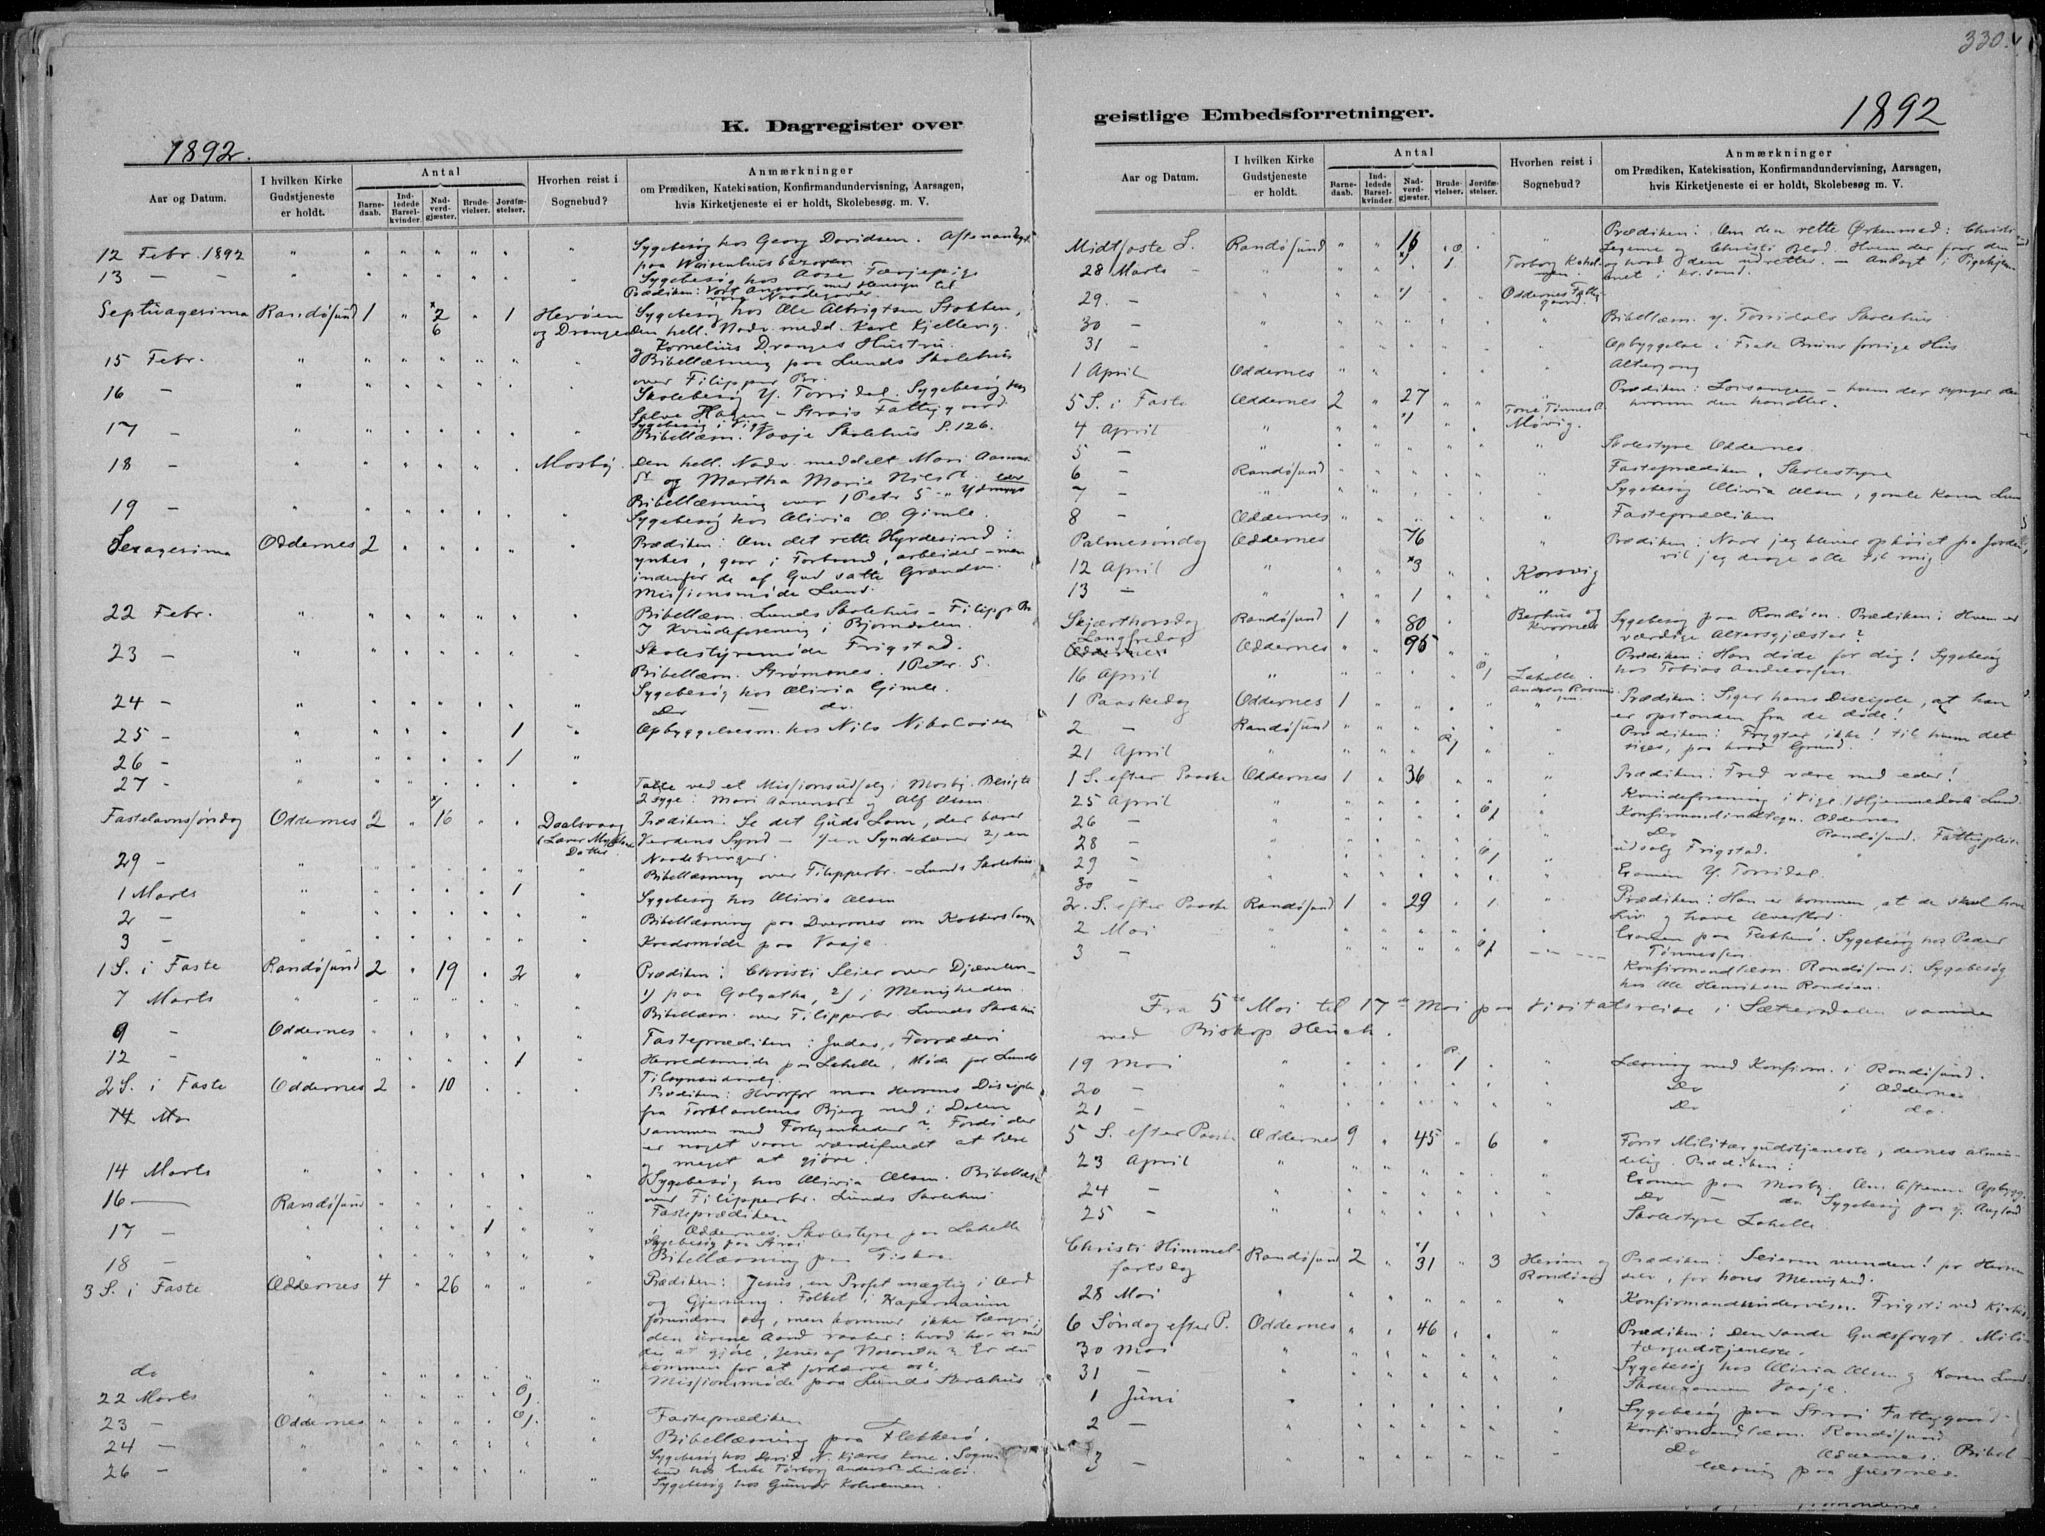 330.
K. Dagregister over
1892.
Antal
Anmærkninger
Aar og Datum.
I hvilken Kirke Gudstjeneste er holdt.
Barnedaab.
Indledede Barselkvinder.
Nadverdgjæster.
Brudevielser.
Jordfæstelser.
Hvorhen reist i Sognebud?
om Prædiken, Katekisation, Konfirmandundervisning, Aarsagen,
hvis Kirketjeneste ei er holdt, Skolebesøg. m. V.
12 Febr. 1892 " " " " " " " Sygebesøg hos Georg Davidsen.
paa Waisenhusbazaren
13 — — " " " " " " Sygebesøg hos
Prædiken: Vort Ansvar med Hensyn til
vore Naadegaver.
Septuagesima Randøsund 1 " x2 " 1 Herøen Sygebesøg hos Ole Albrigtsen Stokken,
6 og Dranges Den hell. Nadv. medd. Karl Kjellevig.
og Kornelius Dranges Hustru.
15 Febr. " " " " " " " Bibellæsning paa Lunds Skolehus
over Filipper Br.
16 — " " " " " " " Skolebesøg Y. Torridal. Sygebesøg hos
Salve Hagen – Strais Fattiggaard.
Sygebesøg i Vige
17 — " " " " " " " Bibellæsn. Vaaje Skolehus S. 126.
18 — " " " " " " Mosby. Den hell. Nadv. meddelt Mari
og Martha Marie Nilsdt.
Bibellæsning over 1 Petr 5
19 — " " " " " " " Sygebesøg hos Olivia O Gimle.
Sexagesima Oddernes 2 " " " " " Prædiken: Om det rette Hyrdesind:
ynkes, gaar i Forbønd, arbeider – men
indenfor de af Gud satte Grændser.
Missionsmøde Lund.
22 Febr. " " " " " " " Bibellæsn. Lunds Skolehus – Filipp Br
Kvindeforening i Bjorndalen.
23 — " " " " " " " Skolestyremøde Frigstad.
Bibellæsn. Strømsnes. 1 Petr. 5.
24 — " " " " " " " Sygebesøg hos Olivia Gimle.
Do — do.
25 — " " " " " 1 " Opbyggelsesm. hos Nils Nikolaisen
26 — " " " " " 1 "
27 - " " " " " " " Talte ved et Missionsudsalg i Mosby. Besøgte
2 syge: Mari Aanensdt og Alf Olsen
Fastelavnssøndag Oddernes 2 " x/16 " " Daalsvaag Prædiken: Se det Guds Lam, der bærer
Verdens Synd – 1/ en Syndebærer 2/ en
Datter.
29 — " " " " " " " Naadebringer.
Bibellæsning over Filipperbr. – Lunds Skolehus
1 Marts " " " " " 1 " Sygebesøg hos Olivia Olsen
2 — " " " " " " " Bibellæsning paa Dvernes om Kobberslangen
3 — " " " " " " " Kredsmøde paa Vaaje.
1 S. i Faste Randøsund 2 " 19 " 2 " Prædiken: Christi Seier over Djævelen –
1) paa Golgatha, 2) i Menigheden.
7 Marts " " " " " " Bibellæsn. over Filipperbr. Lunds Skolehus
9 - Oddernes " " " " " " Fasteprædiken: Judas, Forræderi
12 — " " " " " 1 " Herredsmøde paa Lahelle, Møde paa Lunds
Tilsynsudvalg.
2 S. i Faste Oddernes 2 " 10 " " " Prædiken: Hvorfor maa Herrens Disciple
fra Forklarelsens Bjerg ned i Dalen
sammen med Forlegenheder? Fordi der
er noget saare værdifuldt at lære
og meget at gjøre.
14 Marts " " " " " " " Sygebesøg hos Olivia Olsen. Bibellæsn
over Filipperbr. Lunds Skolehus
16 — Randøsund " " " " " " Fasteprædiken
17 — " " " " 1 " " i Oddernes. Skolestyre paa Lahelle
Sygebesøg paa Strai
18 — " " " " " " " Bibellæsning paa Fiskaa.
3 S. i Faste Oddernes 4 " 26 " " " Prædiken: Jesus, en Profet mægtig i Ord
og Gjerning. Folket i Kapernaum
forundrer sig, men kommer ikke længer;
den urene Aand raaber: hvad har vi med
dig at gjøre, Jesus af Nasareth? Er du
kommen for at fordærve os?
do " " " " " " " Missionsmøde paa Lunds Skolehus
22 Marts " " " " " O/1 "
23 — Oddernes " " " " O/1. " Fasteprædiken
24 — " " " " " " " Bibellæsning paa Flekkerø.
26 — " " " " " " " Sygebesøg hos David N. Kjæres Kone. Sogne-
bud hos Enke Torborg Andersdt Lindebø.
Sygebesøg hos Gunvor
geistlige Embedsforretninger.
1892
Antal
Anmærkninger
Aar og Datum.
I hvilken Kirke Gudstjeneste er holdt.
Barnedaab.
Indledede Barselkvinder.
Nadverdgjæster.
Brudevielser.
Jordfæstelser.
Hvorhen reist i Sognebud?
om Prædiken, Katekisation, Konfirmandundervisning, Aarsagen,
hvis Kirketjeneste ei er holdt, Skolebesøg m. V.
Midtfaste S. Randøsund " " 16 " " " Prædiken: Om den rette Ørkenmad: Christi
Legeme og Christi Blod. Hvem der faar den
28 Marts — " " " x/ 1 " Torborg og hvad den udretter. — Andagt i Pigehjem-
met i Kr.sand.
29. — " " " x/ " " Oddernes Fattig-
gaard.
30 — " " " " " " " Bibellæsn. Y. Torridals Skolehus
31 — " " " " " " " Opbyggelse i Frik Bruns forrige Hus
1 April Oddernes " " " " " " Altergang
5 S. i Faste Oddernes 2 " 27 " " " Prædiken: Lovsangen – hvem der synger den
hvorom den handler.
4 April " " " x/ " " Tone Tønnesd. Møvig.
5 — " " " " " " Skolestyre Oddernes.
6 — Randøsund " " " " " " Fasteprædiken, Skolestyre
7 — " " " " " " " Sygebesøg Olivia Olsen, gamle Karen Lund
8 — Oddernes " " " " " " Fasteprædiken
Palmesøndag Oddernes " " 76 " " " Prædiken: Naar jeg bliver ophøiet fra Jorden,
vil jeg drage alle til mig
12 April " " " x3 " " Korsvig
13 — " " " 1 " " "
Skjærthorsdag Randøsund 1 " 80 " " Berhus og Kvarnes Sygebesøg paa Randøen. Prædiken: Hvem er
værdige Altersgjæster?
Langfredag Oddernes " " 95 " " " Prædiken: Han døde for dig! Sygebesøg
hos Tobias Andreassen.
16 April " " " " " O/1 Lahelle.
1 Paaskedag Oddernes 1 " " " " " Prædiken: Siger hans Disciple, at han
er opstanden fra de døde!
2 — Randøsund " " " " " " Prædiken: Frygter ikke! til hvem det
siges, paa hvad Grund.
21 April " " " " R/1 " "
1 S. efter Paaske Oddernes 1 " 36 " " " Prædiken: Fred være med eder!
25 April " " " " " O/1 " Kvindeforening i Vige, Hjemmedaab Lund
26 — " " " " " " " Konfirmandindtegn. Oddernes
28 — " " " " " " " Do Randøsund.
29 — " " " " " O/1 " udsalg Frigstad.
30 — " " " " " " " Examen Y. Torridal.
2. S. efter Paaske Randøsund 1 " 29 " 1 " Prædiken: Han er kommen, at de skal have
Liv og have Overflod.
2 Mai " " " " " " " Examen paa Flekkerø. Sygebesøg hos Peder
Tønnessen.
3 — " " " " " O/1 — Konfirmandlæsn. Randøsund. Sygebesøg
hos Ole Henriksen Randøen.
Fra 5te Mai til 17de Mai paa Visitatsreise i Sætersdalen sammen
med Biskop Heuch.
19 Mai " " " " R/1 " " Læsning med Konfirm. i Randøsund.
20 — " " " " " " " Do i Oddernes
21 — " " " " " " " Do i do.
5 S. efter Paaske Oddernes 9 " 45 " 6 " Først Militærgudstjeneste, dernæst almin-
delig. Prædiken:
23 April " " " " " " " Examen paa Mosby. Om Aftenen Opbygg.
24 — " " " " " " " Do — do Sygebesøg paa Y. Augland
25 — " " " " " " " Skolestyre Lahelle.
Christi Himmel-
fartsdag Randøsund 2 " x/31 " 3 Herøen og Randøen Prædiken: Seieren vunden! for Herren
selv, for hans Menighed.
28 Mai " " " " " " " Konfirmandundervisn. Frigst. ved Kirken
6 Søndag efter P. Oddernes " " 46 " " " Prædiken: Den sande Gudsfrygt. Mili-
tærgudstjeneste.
30 Mai " " " " " " "
31 — " " " " " " " Sygebesøg hos Olivia Olsen og Karen Lund
1 Juni " " " " " " " Skoleexamen Vaaje.
2 — " " " " " " " Sygebesøg paa Strai Fattiggaard
Konfirmandlæsn. Randøsund
3 — " " " " " " " Do Oddernes. Bibel-
læsning paa Justnes.